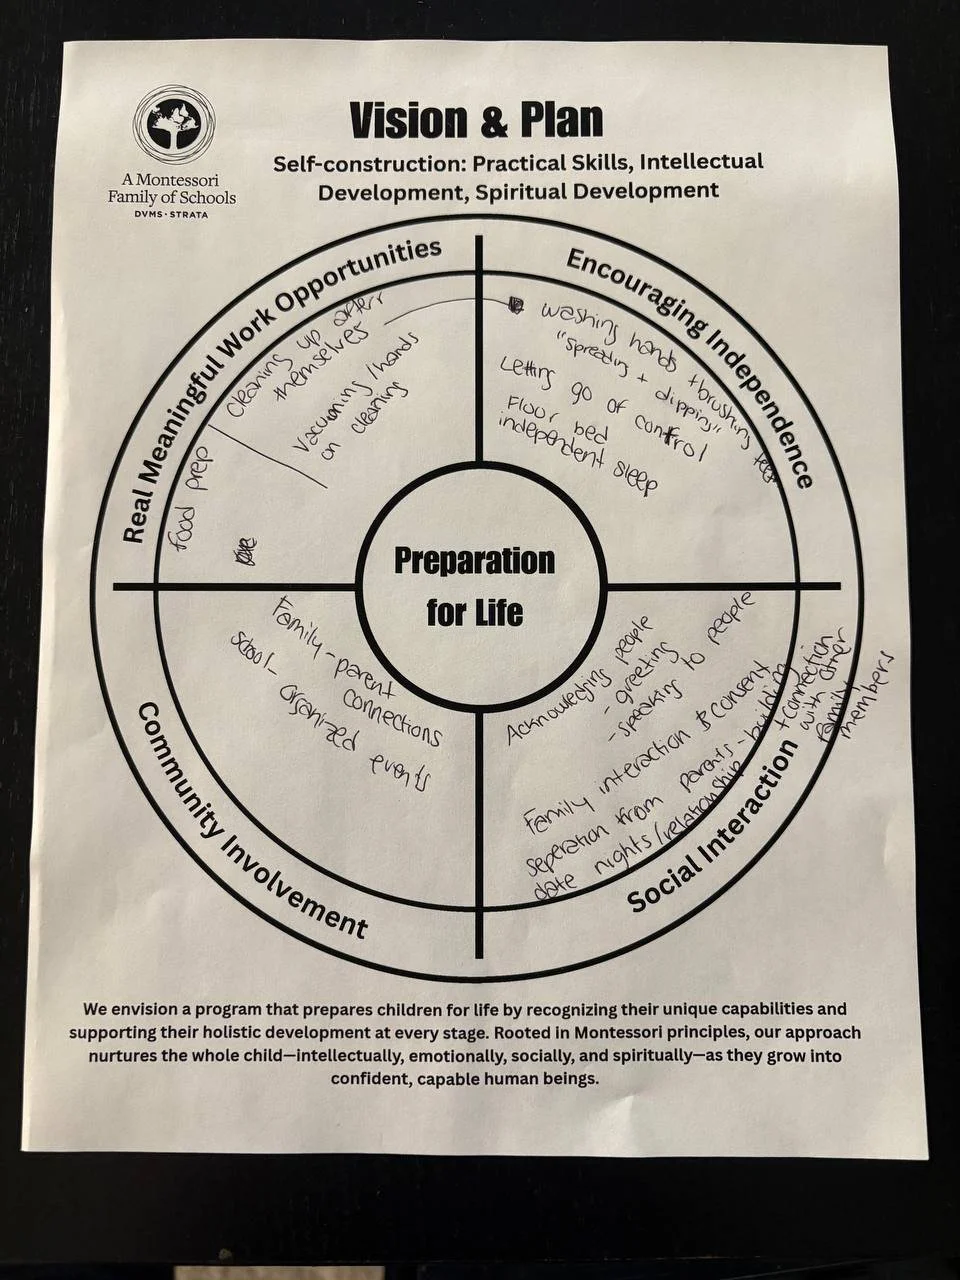 A Montessori
Family of Schools
DVMS · STRATA
Vision & Plan
Self-construction: Practical Skills, Intellectual
Development, Spiritual Development
Real Meaningful Work Opportunities
cleaning up after
themselves
Vacuuming /hands
on cleaning
food prep
Encouraging Independence
washing hands + brushing teeth
"spreading + dipping"
Letting go of control
Floor bed
independent sleep
Preparation
for Life
Community Involvement
Family - parent
connections
school - organized events
Social Interaction
Acknowledging people
- greeting
- speaking to people
Family interaction & consent
seperation from parents - building
date nights/relationship
+ connection
with other
family
members
We envision a program that prepares children for life by recognizing their unique capabilities and
supporting their holistic development at every stage. Rooted in Montessori principles, our approach
nurtures the whole child—intellectually, emotionally, socially, and spiritually—as they grow into
confident, capable human beings.